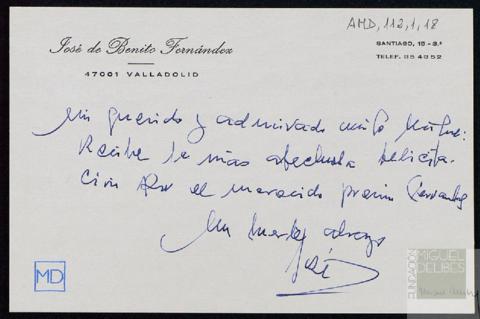 AMD, 112, 1, 18
José de Benito Fernández
SANTIAGO, 15 - 3.º
TELEF. 35 48 52
47001 VALLADOLID
Mi querido y admirado
Recibe la más afectuosa felicita-
ción por el merecido premio Cervantes
Un fuerte abrazo
José
MD
FUNDACIÓN
MIGUEL
DELIBES